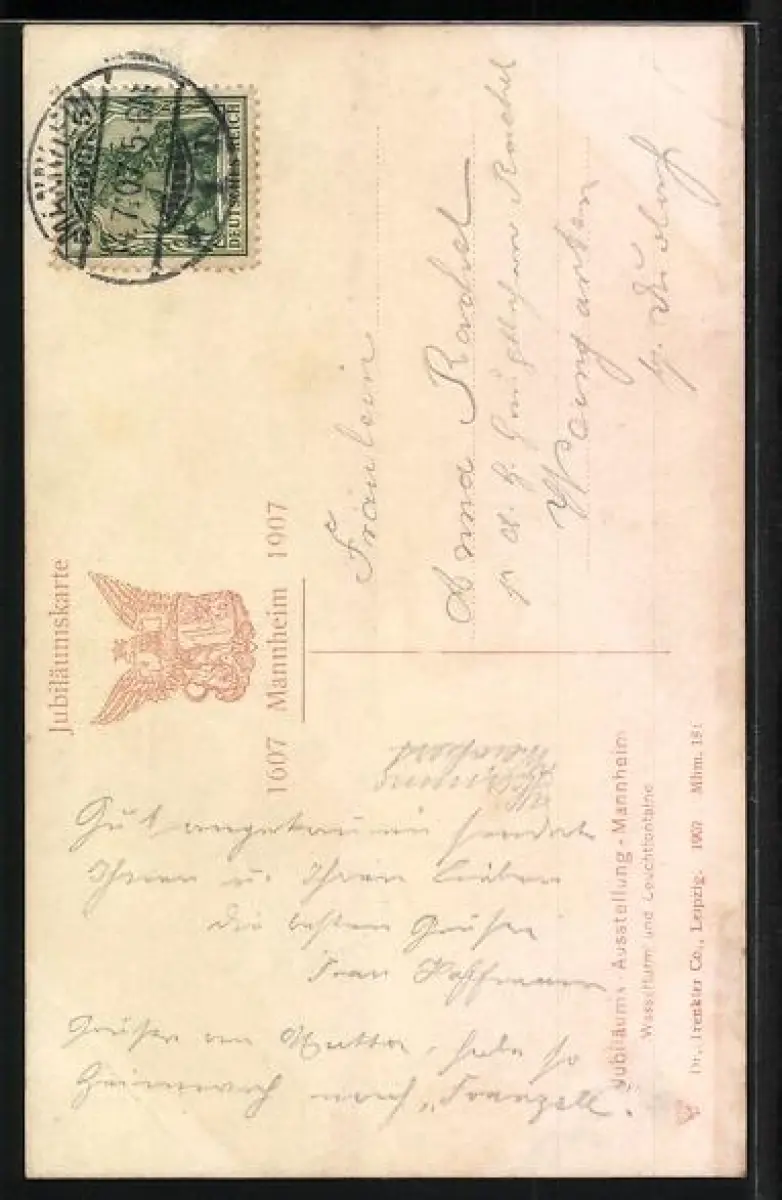 Jubiläumskarte
1607 Mannheim 1907
DEUTSCHES REICH
7.07.5-6
Fräulein
Anna Rachel
Weingarten
b. Durlach
Gut angekommen sendet
Ihnen u. Ihren Lieben
die besten Grüße
Frau Hoffmann
Grüße an Mutter, habe so
Heimweh nach
Jubiläums-Ausstellung-Mannheim
Wasserturm und Leuchtfontaine
Dr. Trenkler Co., Leipzig. 1907 Mhm. 181